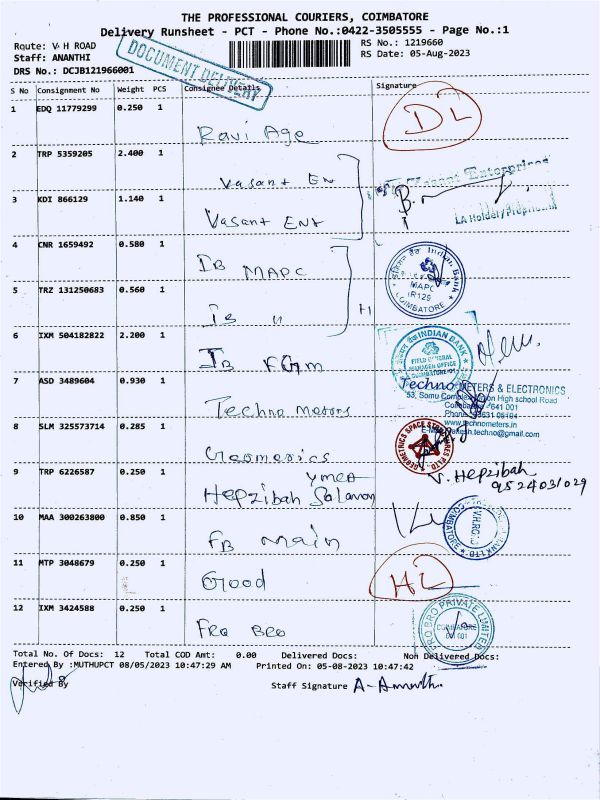 THE PROFESSIONAL COURIERS, COIMBATORE
Delivery Runsheet - PCT - Phone No.:0422-3505555 - Page No.:1
Route: V H ROAD
RS No.: 1219660
Staff: ANANTHI
RS Date: 05-Aug-2023
DRS No.: DCJB121966001
DOCUMENT DELIVERY
S No Consignment No Weight PCS Consignee Details Signature
1 EDQ 11779299 0.250 1
Ravi Age
DL
2 TRP 5359205 2.400 1
Vasant En
Vasant Enterprises
3 KDI 866129 1.140 1
Vasant Ent
LA Holder/Proprietor
4 CNR 1659492 0.580 1
IB MAPC
Indian Bank
MAPC
COIMBATORE
5 TRZ 131250683 0.560 1
IB "
6 IXM 504182822 2.200 1
IB FGM
INDIAN BANK
FIELD GENERAL
MANAGER OFFICE
7 ASD 3489604 0.930 1
Techno Meters
Techno METERS & ELECTRONICS
53, Somu Complex, Union High school Road
641 001
www.technometers.in
8 SLM 325573714 0.285 1
Geomerics
GEOMETRICS SPACE STRUCTURES P LTD
9 TRP 6226587 0.250 1
YMCA
Hepzibah Solamon
V. Hepzibah
9524031029
10 MAA 300263800 0.850 1
FB Main
V.H.ROAD
COIMBATORE
11 MTP 3048679 0.250 1
Good
HL
12 IXM 3424588 0.250 1
FRO BRO
FRO BRO PRIVATE LIMITED
Total No. Of Docs: 12 Total COD Amt: 0.00 Delivered Docs: Non Delivered Docs:
Entered By :MUTHUPCT 08/05/2023 10:47:29 AM Printed On: 05-08-2023 10:47:42
Verified By
Staff Signature